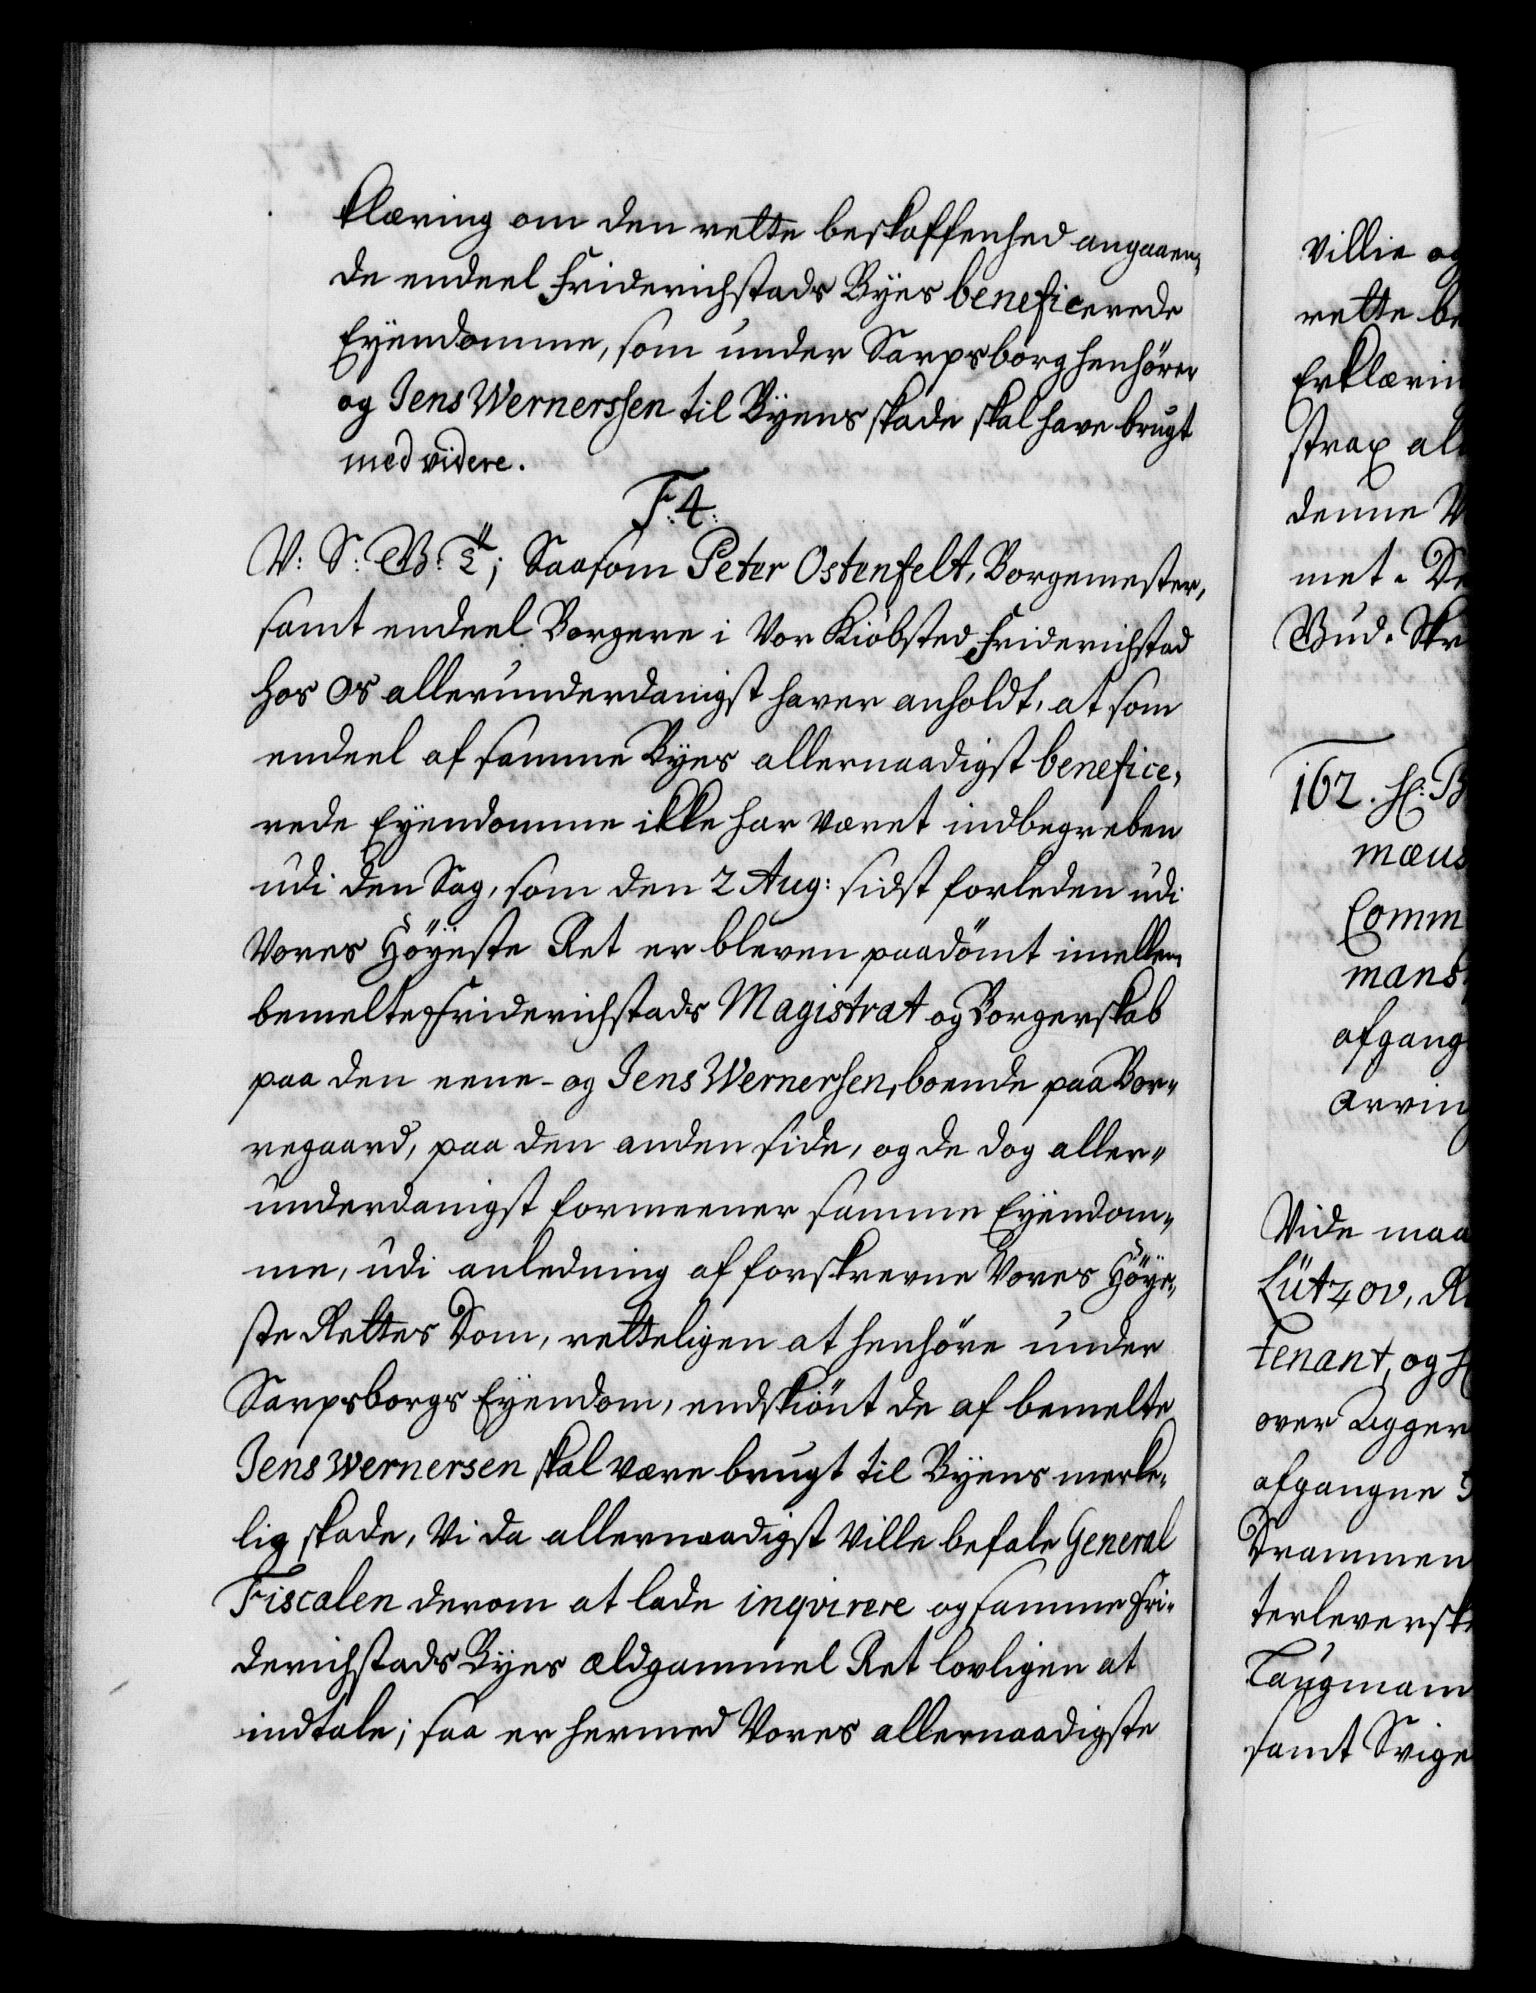 klæring om den rette beskaffenhed angaaen-
de endeel Friderichstads Byes beneficerede
Eyendomme, som under Sarpsborg henhörer
og Jens Wernerssen til Byens skade skal have brugt
med videre.
F. 4.
V: S: G: T; Saasom Peter Ostenfelt, Borgemester,
samt endeel Borgere i Vor Kiöbsted Friderichstad
hos os allerunderdanigst haver anholdt, at som
endeel af samme Byes allernaadigst benefice-
rede Eyendomme ikke har været indbegreben
udi den Sag, som den 2 Aug: sidst forleden udi
Vores Höyeste Ret er bleven paadömt imellem
bemelte Friderichstads Magistrat og Borgerskab
paa den eene- og Jens Wernersen, boende paa Bor-
regaard, paa den anden side, og de dog aller-
underdanigst formeener samme Eyendom-
me, udi anledning af forskrevne Vores Höye-
ste Rettes Dom, retteligen at henhöre under
Sarpsborgs Eyendom, endskiönt de af bemelte
Jens Wernersen skal være brugt til Byens merke-
lig skade, Vi da allernaadigst ville befale General
Fiscalen derom at lade inqvirere og samme Fri-
derichstads Byes ældgammel Ret lovligen at
indtale; saa er hermed Vores allernaadigste
villie og
rette be
Erklærin
strax al
denne V
met. De
Gud. Skr
162. H: B
mæus
Comm
mans
afgang
arving
Vide maa
Lützov, R
tenant, og H
over Agger
afgangne
Drammen
terleversk
Laugmam
samt Svige